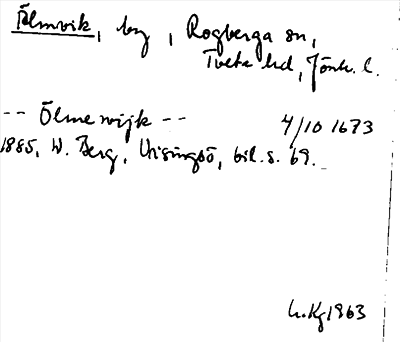 Ölmvik, by, Rogberga sn,
Tveta hd, Jönk. l.
-- Ölmewijk -- 4/10 1673
1885, W. Berg, Visingsö, bil. s. 69.
L. Kg 1963